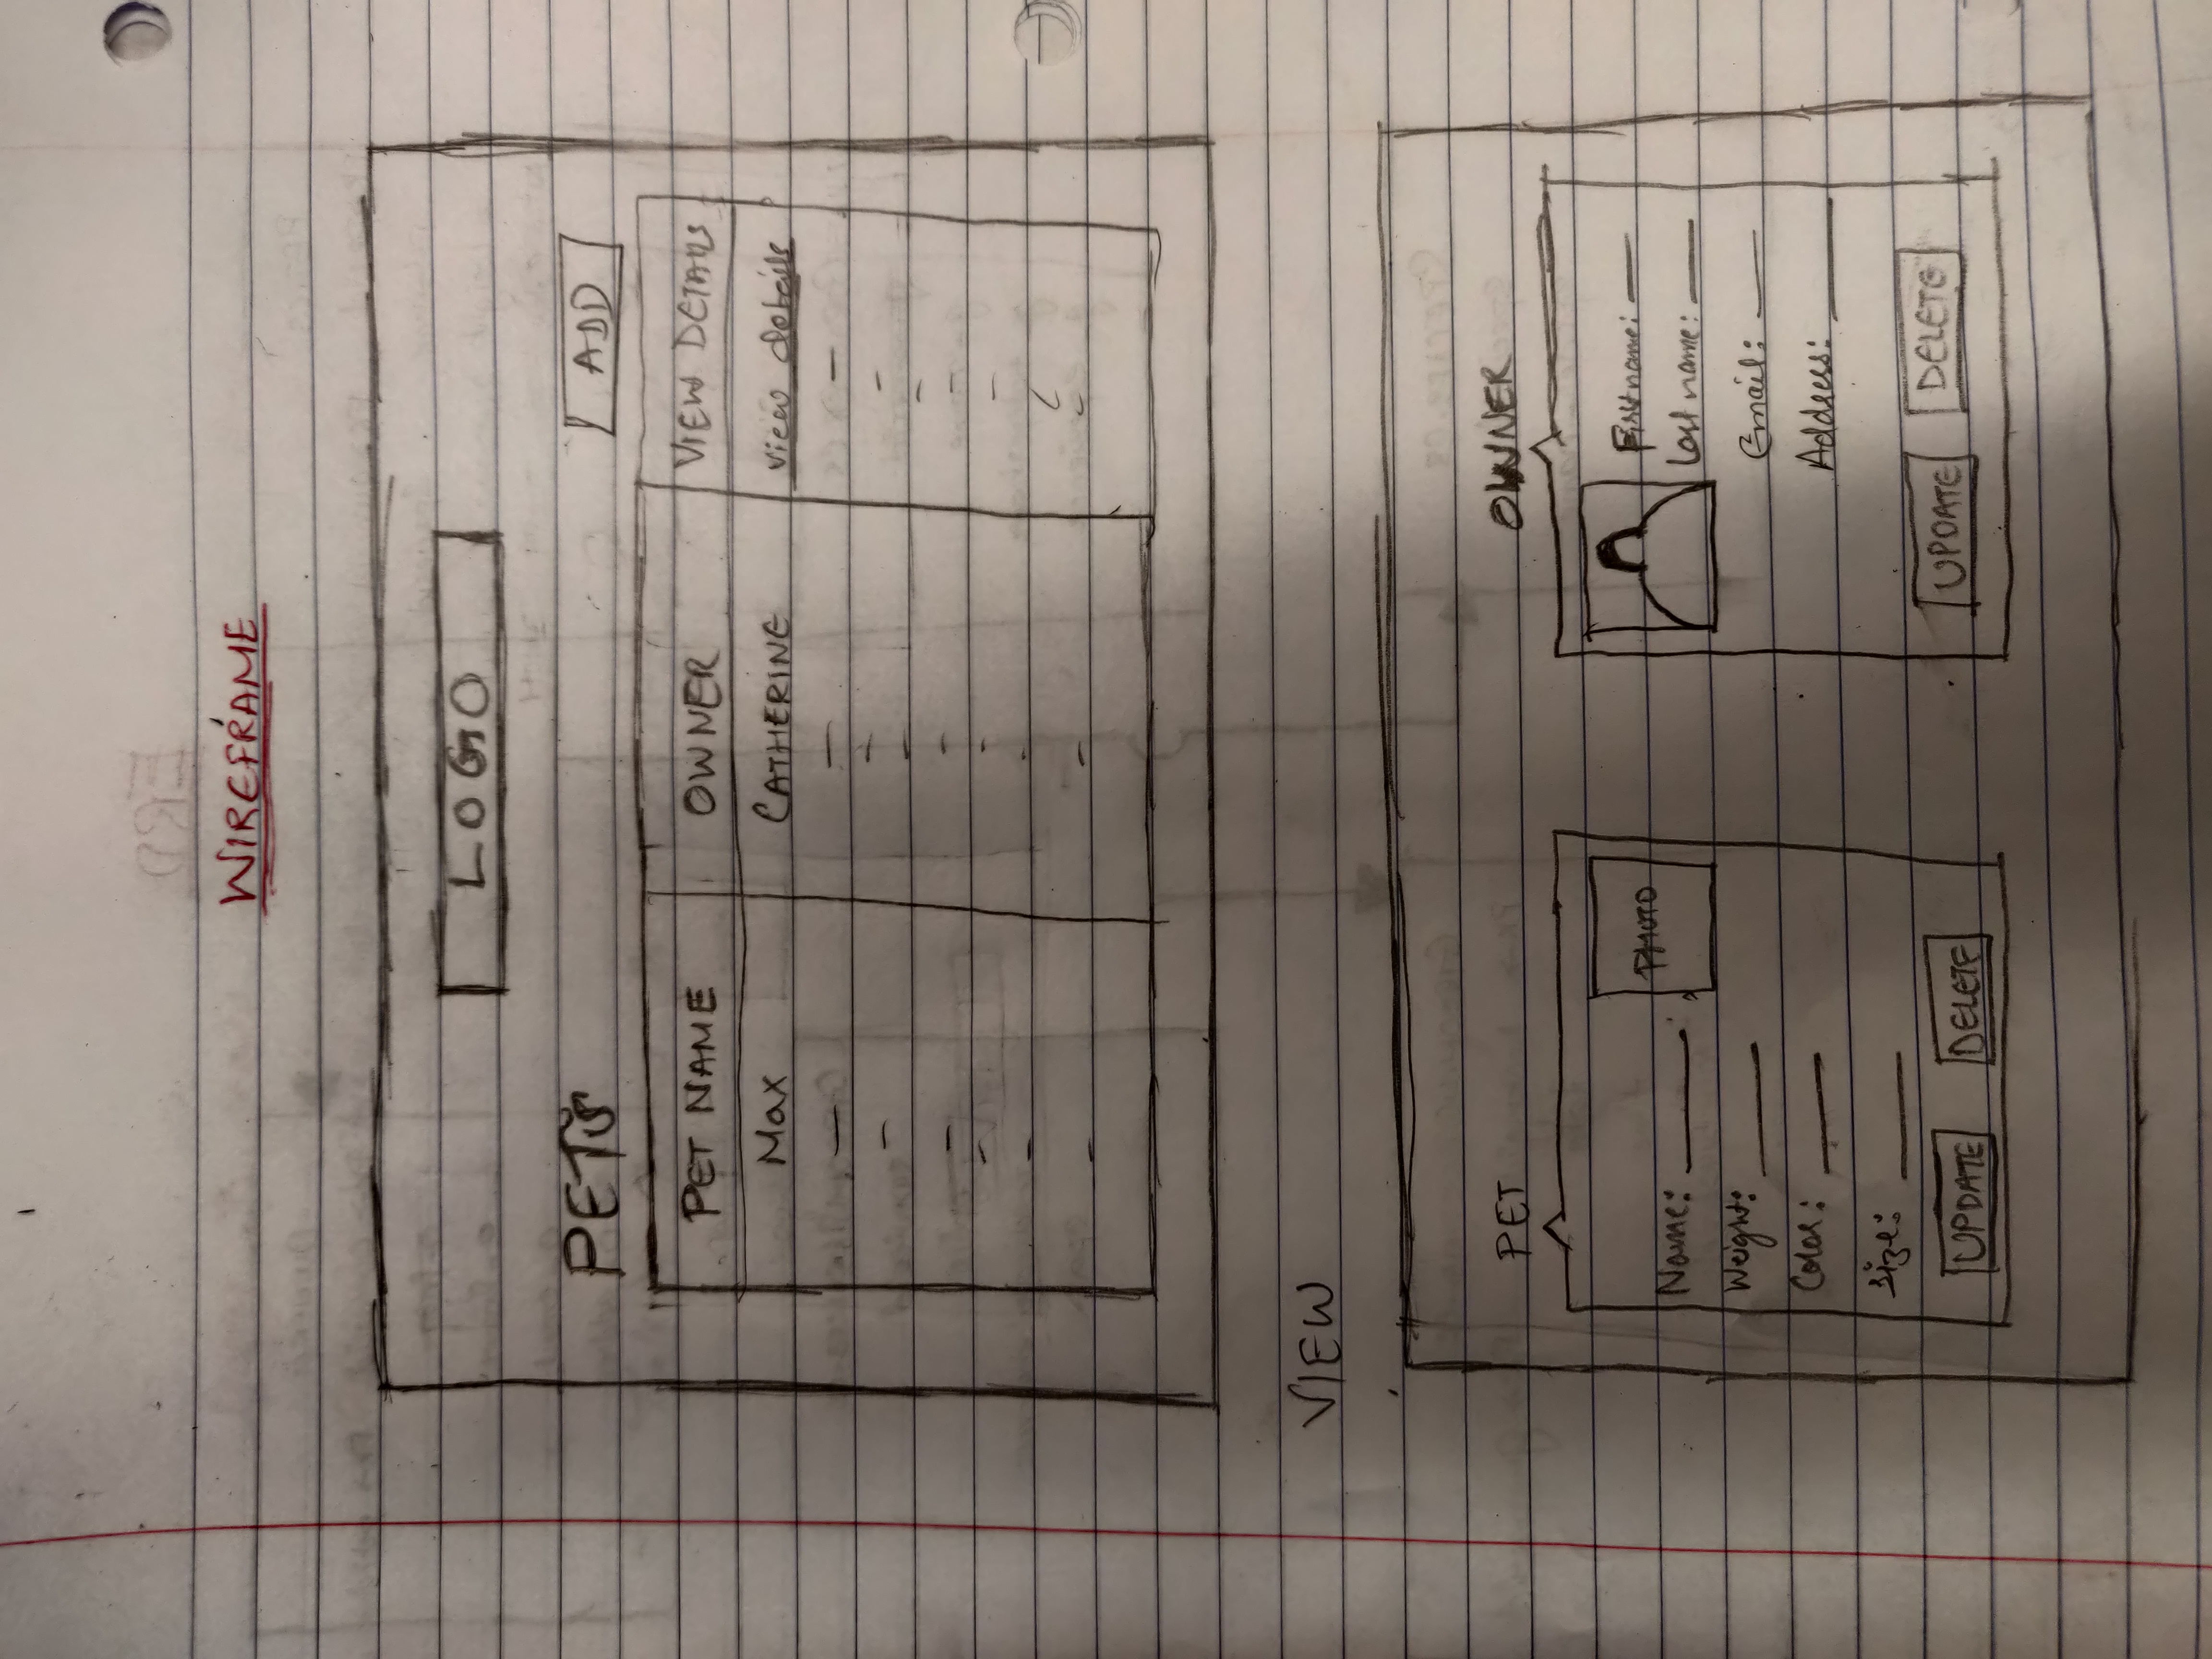 WIREFRAME
LOGO
PETS
ADD
PET NAME OWNER VIEW DETAILS
Max CATHERINE view details
VIEW
PET OWNER
PHOTO
Name:
Weight:
Color:
Size:
UPDATE DELETE
First name:
Last name:
Email:
Address:
UPDATE DELETE
ERD